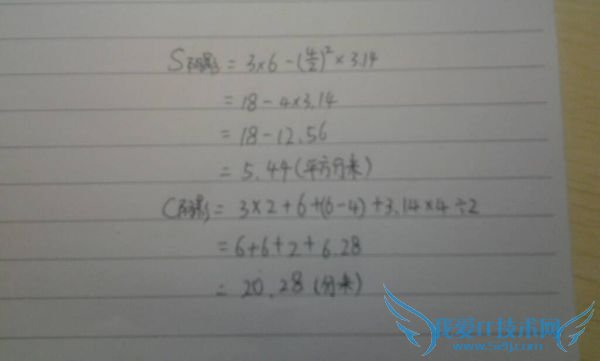 S阴影 = 3×6-(4/2)²×3.14
= 18-4×3.14
= 18-12.56
= 5.44(平方分米)
C阴影 = 3×2+6+(6-4)+3.14×4÷2
= 6+6+2+6.28
= 20.28(分米)
我爱IT技术网
www.52ij.com